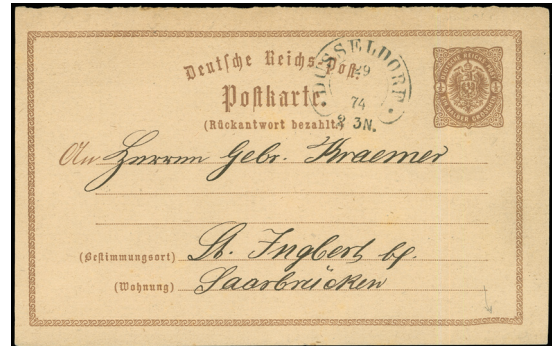 Deutsche Reichs-Post.
Postkarte.
(Rückantwort bezahlt)
DÜSSELDORF
74
3N.
An Herren Gebr. Kraemer
(Bestimmungsort) St. Ingbert bf.
(Wohnung) Saarbrücken